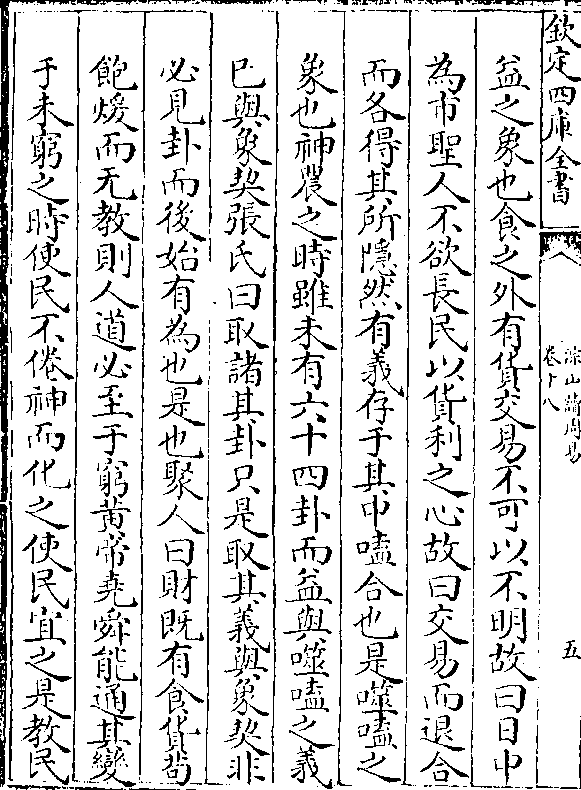 欽定四庫全書
深山讀周易
卷十八
五
益之象也食之外有貨交易不可以不明故曰日中
為市聖人不欲長民以貨利之心故曰交易而退合
而各得其所隱然有義存于其中嗑合也是噬嗑之
象也神農之時雖未有六十四卦而益與噬嗑之義
已與象契張氏曰取諸其卦只是取其義與象契非
必見卦而後始有為也是也聚人曰財既有食貨茍
飽煖而无教則人道必至于窮黄帝堯舜能通其變
于未窮之時使民不倦神而化之使民宜之是教民